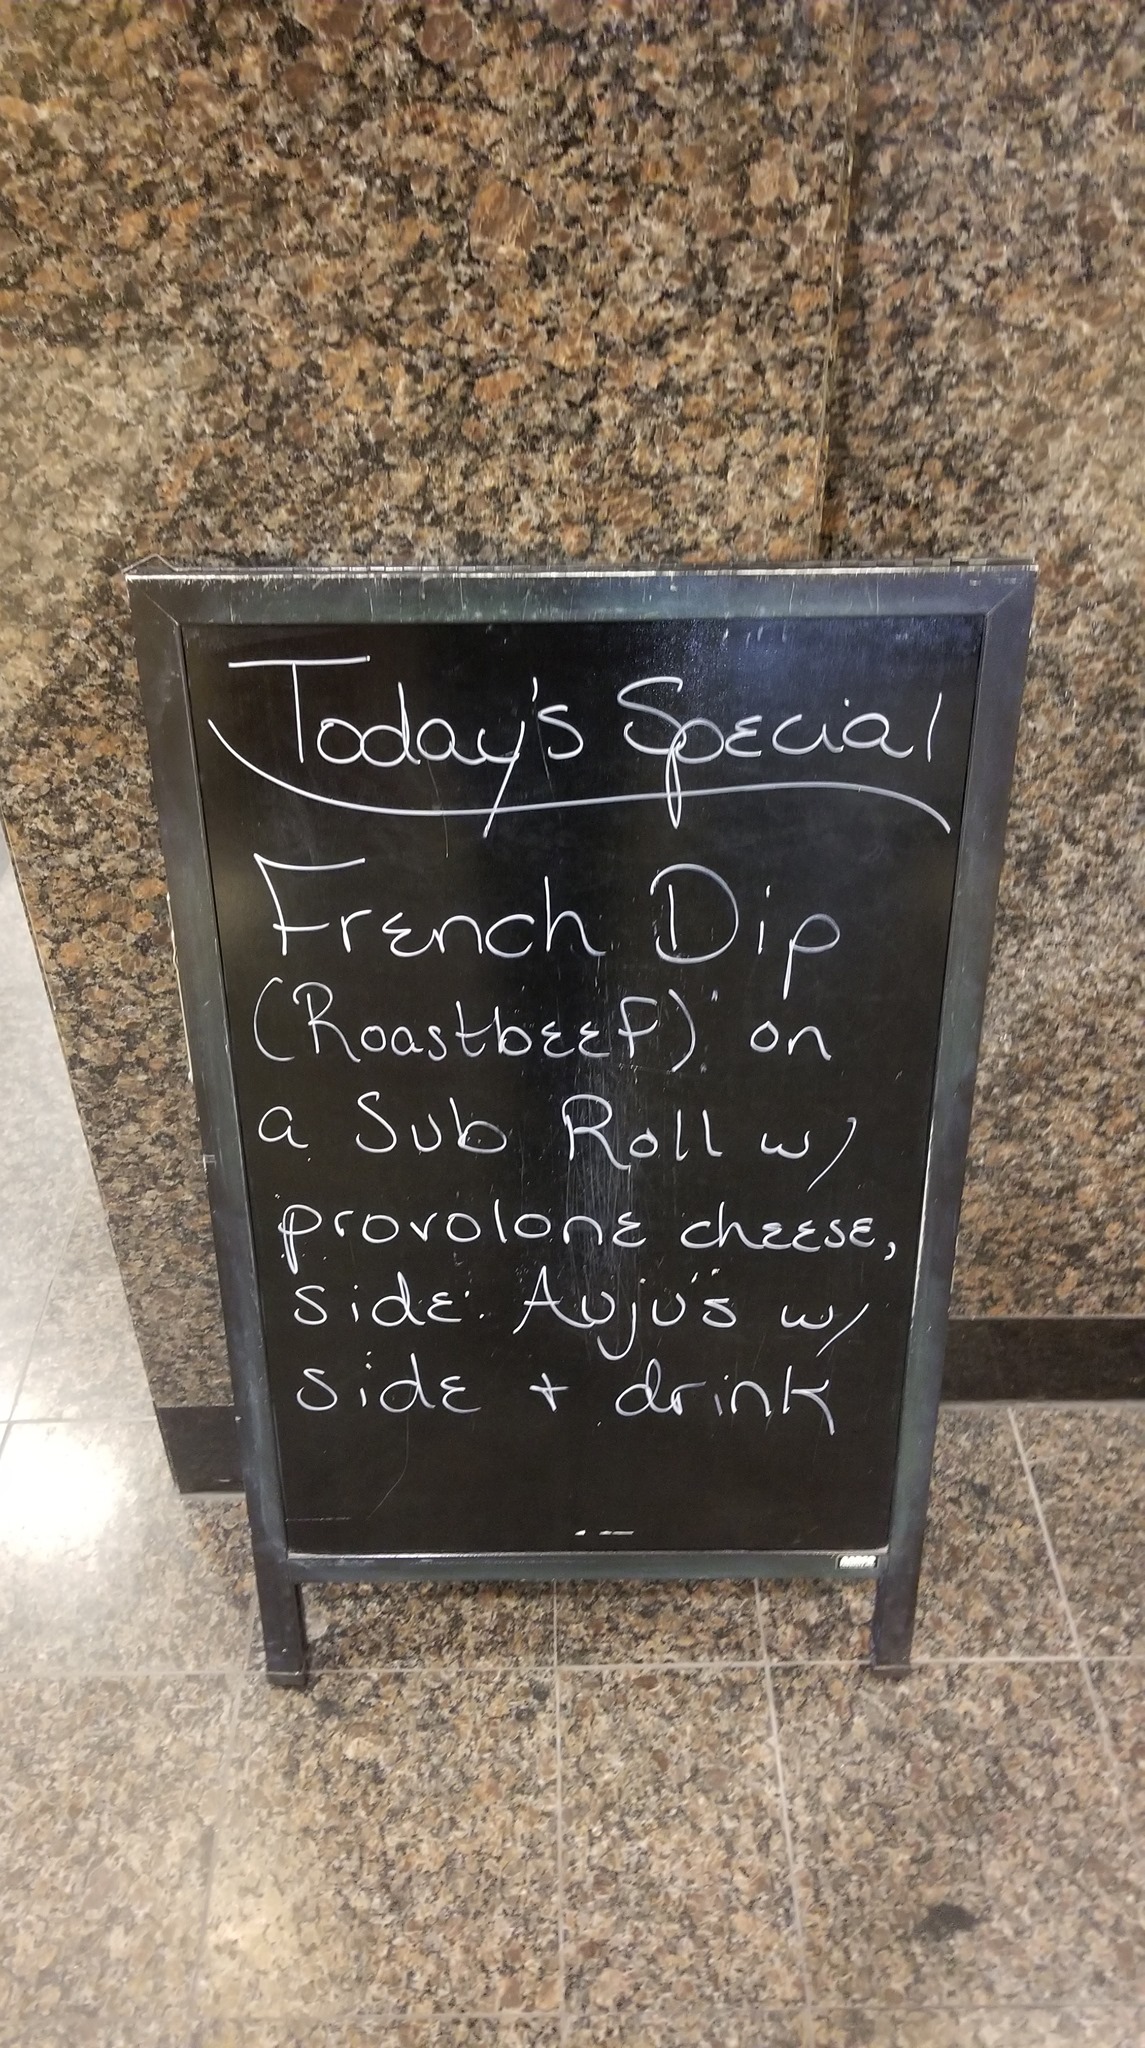 Today's Special
French Dip
(Roastbeef) on
a Sub Roll w/
provolone cheese,
side: Auju's w/
side + drink